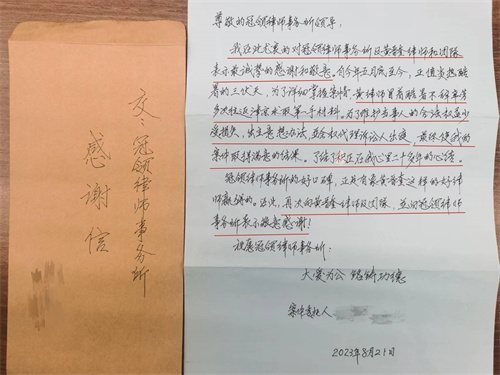 交：冠领律师事务所
感谢信
尊敬的冠领律师事务所领导：
我在此衷衷的对冠领律师事务所及黄普查律师和团队
表示最诚挚的感谢和敬意。自今年五月底至今，正值炎热酷
暑的三伏天，为了详细掌握案情，黄律师冒着酷暑不辞辛苦
多次往返津京求取第一手材料。为了维护当事人的合法权益少
受损失，出主意想办法，并全权代理诉讼人出庭，最终使我的
案件取得满意的结果。了结了积压在我心里二十多年的心结。
冠领律师事务所的好口碑，正是有象黄普查这样的好律
师赢得的。在此，再次向黄普查律师及团队，并向冠领律师
事务所表示最衷感谢！
祝愿冠领律师事务所：
大爱为公 铿锵功德
案件委托人
2023年8月21日